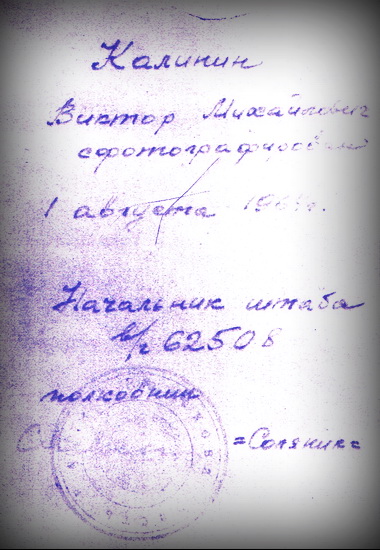 Калинин
Виктор Михайлович
сфотографирован
1 августа
Начальник штаба
в/ч 62508
полковник
=Соляник=